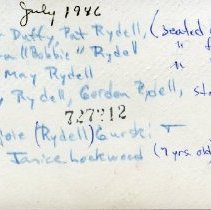 July 1946
Duffy Pat Rydell, (seated
"Bobbie" Rydell " f
May Rydell "
Rydell, Gordon Rydell, st
727212
(Rydell) Gurski T
Janice Lockwood (9 yrs old